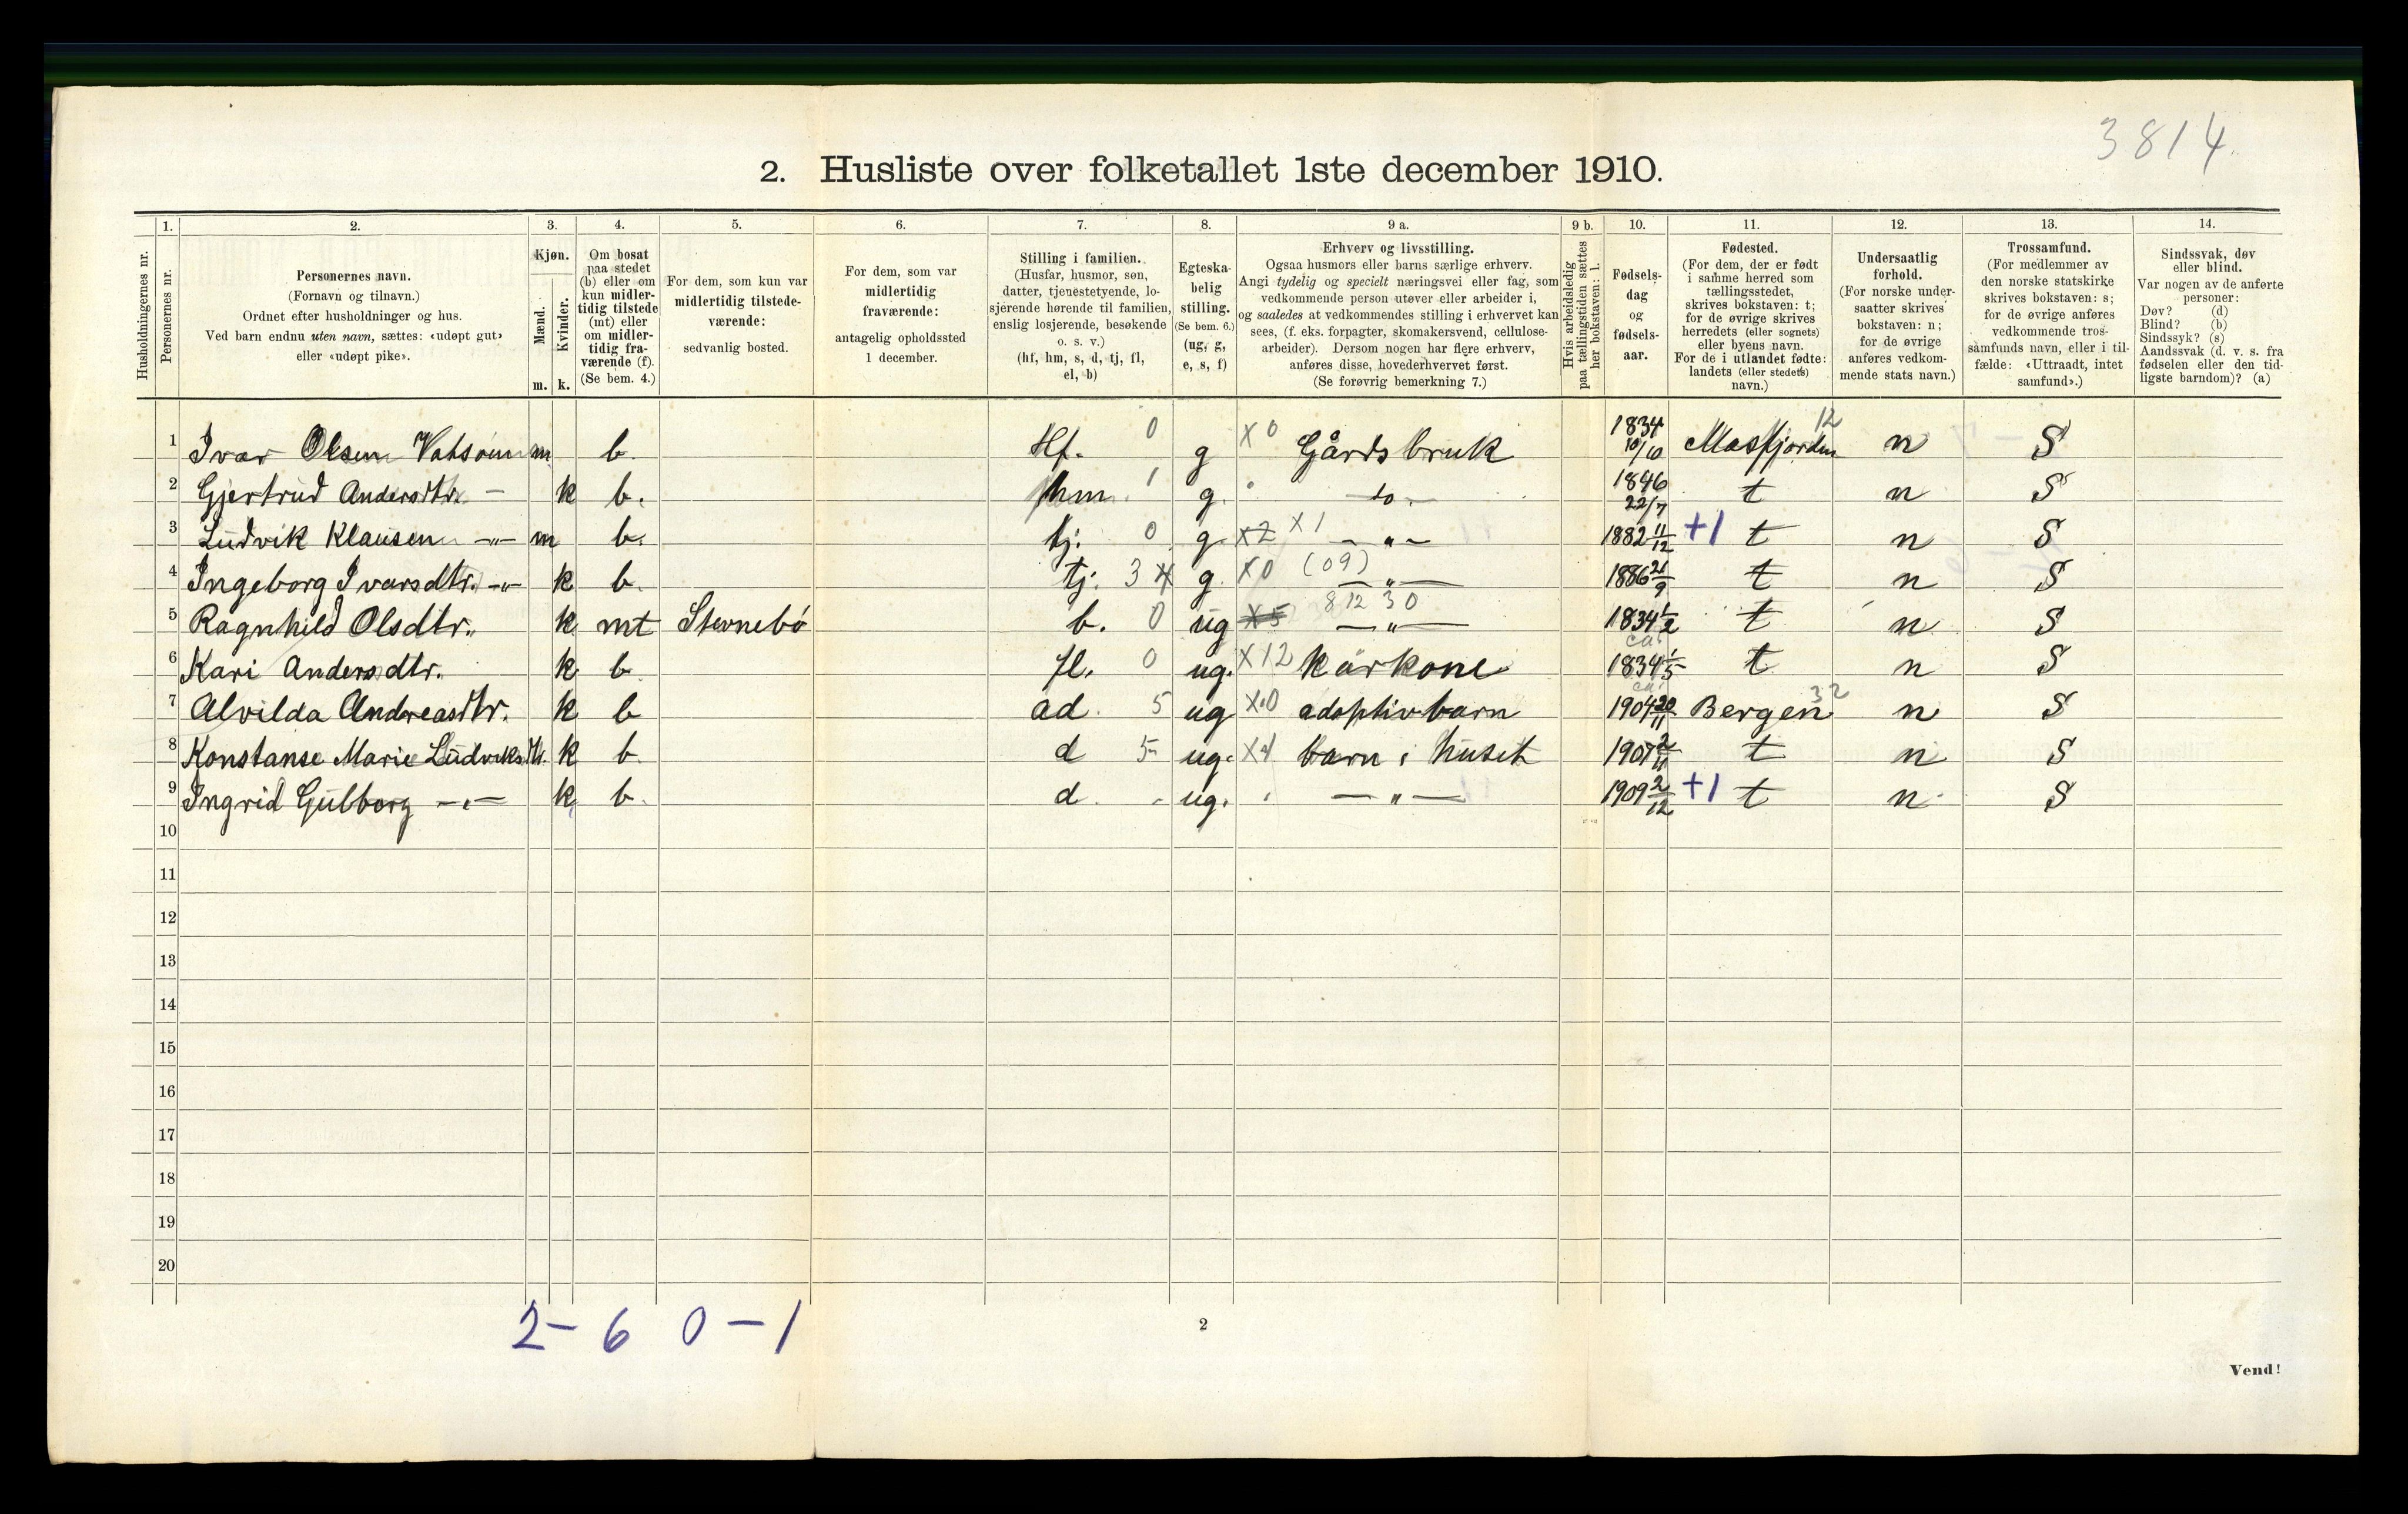 3814.
2. Husliste over folketallet 1ste december 1910.
Husholdningernes nr.
1.
Personernes nr.
2.
Personernes navn.
(Fornavn og tilnavn.)
Ordnet efter husholdninger og hus.
Ved barn endnu uten navn, sættes: «udøpt gut»
eller «udøpt pike».
3.
Kjøn.
Mænd.
Kvinder.
m. k.
4.
Om bosat
paa stedet
(b) eller om
kun midler-
tidig tilstede
(mt) eller
om midler-
tidig fra-
værende (f).
(Se bem. 4.)
5.
For dem, som kun var
midlertidig tilstede-
værende:
sedvanlig bosted.
6.
For dem, som var
midlertidig
fraværende:
antagelig opholdssted
1 december.
7.
Stilling i familien.
(Husfar, husmor, søn,
datter, tjenestetyende, lo-
sjerende hørende til familien,
enslig losjerende, besøkende
o. s. v.)
(hf, hm, s, d, tj, fl,
el, b)
8.
Egteska-
belig
stilling.
(Se bem. 6.)
(ug, g,
e, s, f)
9 a.
Erhverv og livsstilling.
Ogsaa husmors eller barns særlige erhverv.
Angi tydelig og specielt næringsvei eller fag, som
vedkommende person utøver eller arbeider i,
og saaledes at vedkommendes stilling i erhvervet kan
sees, (f. eks. forpagter, skomakersvend, cellulose-
arbeider). Dersom nogen har flere erhverv,
anføres disse, hovederhvervet først.
(Se forøvrig bemerkning 7.)
9 b.
Hvis arbeidsledig
paa tællingstiden sættes
her bokstaven: l.
10.
Fødsels-
dag
og
fødsels-
aar.
11.
Fødested.
(For dem, der er født
i samme herred som
tællingsstedet,
skrives bokstaven: t;
for de øvrige skrives
herredets (eller sognets)
eller byens navn.
For de i utlandet fødte:
landets (eller stedets)
navn.)
12.
Undersaatlig
forhold.
(For norske under-
saatter skrives
bokstaven: n;
for de øvrige
anføres vedkom-
mende stats navn.)
13.
Trossamfund.
(For medlemmer av
den norske statskirke
skrives bokstaven: s;
for de øvrige anføres
vedkommende tros-
samfunds navn, eller i til-
fælde: «Uttraadt, intet
samfund».)
14.
Sindssvak, døv
eller blind.
Var nogen av de anførte
personer:
Døv? (d)
Blind? (b)
Sindssyk? (s)
Aandssvak (d. v. s. fra
fødselen eller den tid-
ligste barndom)? (a)
1 Ivar Olsen m b. Hf. 0 g X0 Gårdsbruk 1834 10/10 Masfjorden 12 n S
2 Gjertrud Andersdtr. — k b. hm. 1 g. " do. 1846 22/7 t n S
3 Ludvik Klausen —"— m b. tj. 0 g. X2 X1 —"— 1882 11/12 +1 t n S
4 Ingeborg Ivarsdtr. —"— k b. tj. 3 4 g. X0 (09) —"— 1886 21/9 t n S
5 Ragnhild Olsdtr. k mt Stevnebø b. 0 ug X5 8 12 30 —"— 1834 1/2 t n S
6 Kari Andersdtr. k b fl. 0 ug. X12 kårkone ca. 1834 1/5 t n S
7 Alvilda Andreasdtr. k b ad. 5 ug X.0 adoptivbarn 1904 20/11 Bergen 32 n S
8 Konstanse Marie Ludviksdtr. k b d 5 ug. X4 barn i huset 1907 2/11 t n S
9 Ingrid Gulborg —"— k b. d. ug. —"— 1909 2/12 +1 t n S
10
11
12
13
14
15
16
17
18
19
20
2 — 6 0 — 1
2
Vend!